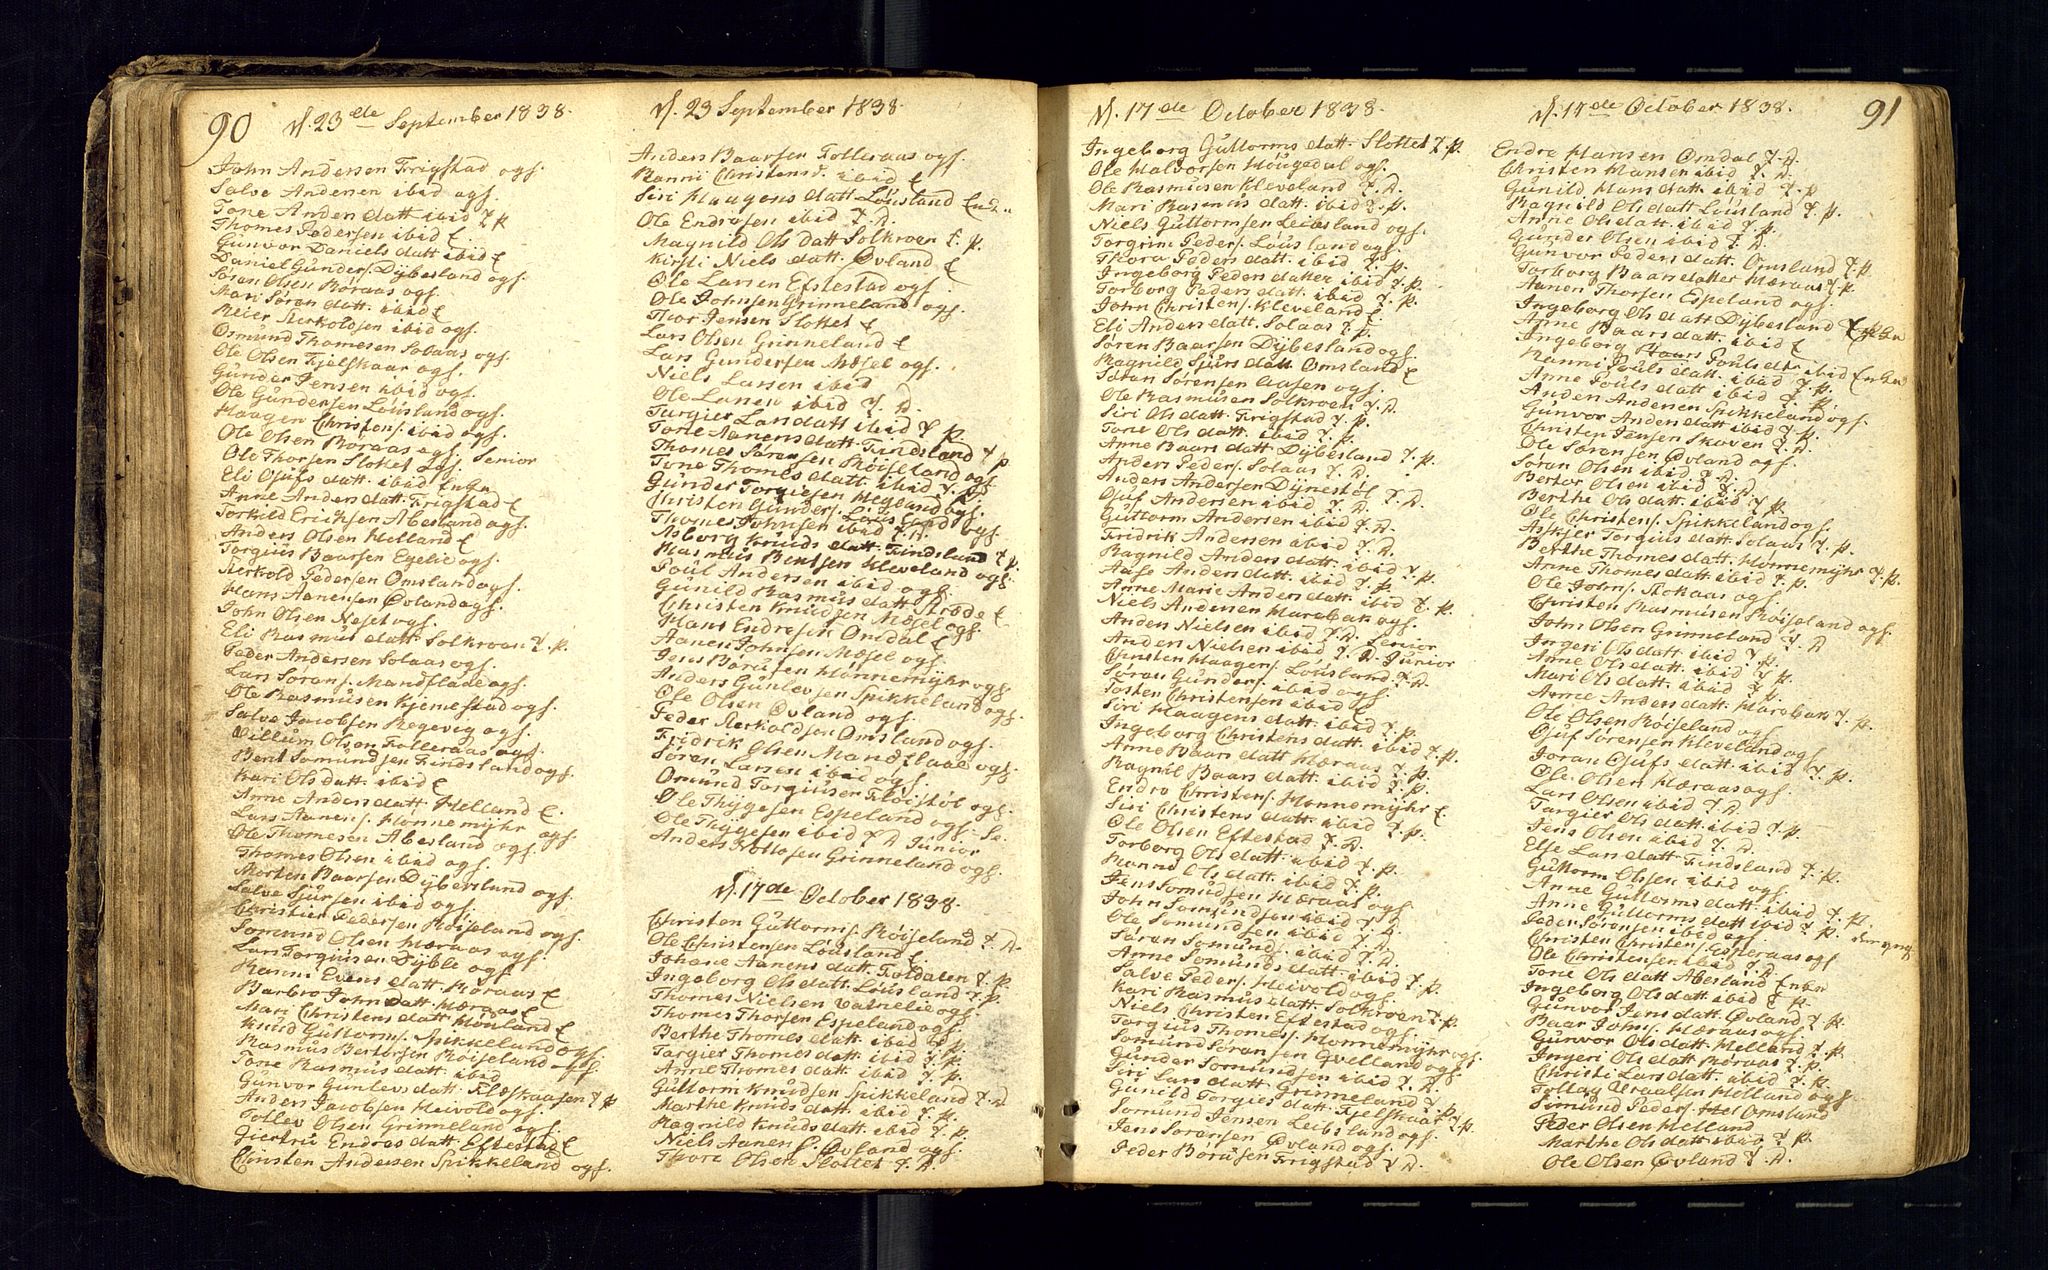 90
d. 23de September 1838.
John Andersen Frigstad ogs.
Salve Andersen ibid ogs.
Tone Anders datt. ibid T. P.
Thomes Pedersen ibid E.
Gunvor Daniels datt. ibid E
Daniel Gunders. Dÿbesland ogs.
Søren Olsen Røraas ogs.
Mari Søren datt. ibid E
Reier Kerkoldsen ibid ogs.
Osmund Thomesen Solaas ogs.
Ole Olsen Fjelskaar ogs.
Gunder Jensen ibid ogs.
Ole Gundersen Løusland ogs.
Haagen Christens. ibid ogs.
Ole Olsen Røraas ogs. Senior
Ole Thorsen Slottet ogs.
Eli Ojufs datt. ibid Enken
Anne Anders datt. Frigstad E
Torkild Erichsen Abesland ogs.
Anders Olsen Helland E
Torgius Baarsen Egelie ogs.
Kerkold Pedersen Omsland ogs.
Hans Aanensen Øvland ogs.
John Olsen Neset ogs.
Eli Rasmus datt. Solkroen T. P.
Peder Andersen Solaas ogs.
Lars Sørens. Mandflaae ogs.
Ole Rasmusen Kjemestad ogs.
Salve Jacobsen Regevig ogs.
Villum Olsen Folleraas ogs.
Bent Somundsen Findsland ogs.
Kari Ols datt. ibid E
Anne Anders datt. Helland E.
Lars Aanens. Honnemÿhr ogs.
Ole Thomesen Abesland ogs.
Thomes Olsen ibid ogs.
Morten Baarsen Dÿbesland ogs.
Salve Sjursen ibid ogs.
Christen Pedersen Røiseland ogs.
Somund Olsen Hæraas ogs.
Lars Torgiusen Dÿble ogs.
Ranni Evens datt. Røraas E
Barbro John datt. Hæraas E
Mari Christens datt. Houland E
Knud Guttorms. Spikkeland ogs.
Rasmus Bertorsen Røiseland ogs.
Tone Rasmus datt. ibid
Gunvor Gunlevs datt. Flæskaasen T. P.
Anders Jacobsen Heivold ogs.
Tollev Olsen Grinneland ogs.
Giertru Endres datt. Eftestad E
Christen Andersen Spikkeland ogs.
d. 23 September 1838.
Anders Baarsen Folleraas ogs.
Ranni Christens d. ibid E
Siri Haagens datt. Løusland Enk..
Ole Endresen ibid T. D.
Magnild Ols datt. Solkroen T. P.
Kirsti Niels datt. Øvland E
Ole Larsen Eftestad ogs.
Ole Johnsen Grinneland ogs.
Thor Jensen Slottet E
Lars Olsen Grinneland E
Lars Gundersen Mæsel ogs.
Niels Larsen ibid
Ole Larsen ibid T. D.
Targier Lars datt. ibid T. P.
Tone Aanens datt. Findsland T. P.
Thomes Sørensen Røiseland ogs.
Tone Thomes datt. ibid T. P.
Gunder Torgiesen Hegland ogs.
Christen Gunders. Løusland ogs.
Thomes Johnsen ibid T. D.
Asborg Knuds datt. Findsland T. P.
Rasmus Bentsen Kleveland ogs.
Poul Andersen ibid ogs.
Gunild Rasmus datt. Strøde E
Christen Knudsen Mæsel ogs.
Hans Endresen Omdal E
Aanen Johnsen Mæsel ogs.
Jens Børusen Honnemÿhr ogs.
Anders Gunlevsen Spikkeland ogs.
Ole Olsen Øvland ogs.
Peder Kerkoldsen Omsland ogs.
Fridrik Olsen Mandflaae ogs.
Søren Larsen ibid ogs.
Omund Torgiusen Fløistøl ogs.
Ole Thÿgesen Espeland ogs. Se.
Ole Thÿgesen ibid T. D. Junior
Anders Nottosen Grinneland ogs.
d. 17de October 1838.
Christen Guttorms. Røiseland T. D.
Ole Christensen Løusland E
Johane Aanens datt. Foldalen T. P.
Ingeborg Ols datt. Løusland T. P.
Thomes Nielsen Vatnelie ogs.
Thomes Thorsen Espeland ogs.
Berthe Thomes datt. ibid T. P.
Targier Thomes datt. ibid T. P.
Anne Thomes datt. ibid T. P.
Guttorm Knudsen Spikkeland T. D.
Marthe Knuds datt. ibid T. P.
Ragnild Knuds datt. ibid T. P.
Niels Aanens. Øvland ogs.
Thore Olsen Slottet T. D.
d. 17de October 1838.
Ingeborg Guttorms datt. Slottet T. P.
Ole Halvorsen Hougedal ogs.
Ole Rasmusen Kleveland T. D.
Mari Rasmus datt. ibid T. P.
Niels Guttormsen Leibsland ogs.
Torgrim Peders. Løusland ogs.
Thora Peders datt. ibid T. P.
Ingeborg Peders datter ibid T. P.
Torborg Peders datt. ibid T. P.
John Christens. Kleveland E
Eli Anders datt. Solaas T. P.
Søren Baarsen Dÿbesland ogs.
Ragnild Sjurs datt. Omsland E
Søran Sørensen Aasen ogs.
Ole Rasmusen Solkroen T. D.
Siri Ols datt. Frigstad T. P.
Tone Ols datt. ibid T. P.
Anne Baars datt. Dÿbesland T. P.
Anders Peders. Solaas T. D.
Anders Andersen Dÿnestøl T. D.
Ojuf Andersen ibid T. D.
Guttorm Andersen ibid T. D.
Fridrik Andersen ibid T. D.
Ragnild Anders datt. ibid T. P.
Aase Anders datt. ibid T. P.
Anne Marie Anders datt. ibid T. P.
Niels Andersen Harebak ogs.
Anders Nielsen ibid T. D. Senior
Anders Nielsen ibid T. D. Junior
Christen Haagens. Løusland T. D.
Søren Gunders. ibid ogs.
Tosten Christensen ibid E
Siri Haagens datt. ibid T. P.
Ingeborg Christens datt. ibid T. P.
Anne Baars datt. Hæraas T. P.
Ragnil Baars datt. ibid T. P.
Endre Christens. Honnemÿhr E
Siri Christens datt. ibid T. P.
Ole Olsen Eftestad T. D.
Torborg Ols datt. ibid T. P.
Hanne Ols datt. ibid T. P.
Jens Somundsen Hæraas ogs.
John Somundsen ibid T. D.
Ole Somundsen ibid T. D.
Søran Somunds. ibid T. D.
Anne Somunds datt. ibid T. P.
Salve Peders. Heivold ogs.
Kari Rasmus datt. Solkroen T. P.
Niels Christens Eftestad ogs.
Torgius Thomes. Honnemÿhr ogs.
Somund Sørensen Qvelland ogs.
Gunder Somundsen ibid T. D.
Siri Lars datt. Grinneland T. P.
Gunild Torgies datt. Fjelskaar T. P.
Somund Jensen Leibsland ogs.
Jens Sørensen Øvland ogs.
Peder Børusen Frigstad T. D.
d. 17de October 1838.
91
Endre Hansen Omdal T. D.
Christen Hansen ibid T. D.
Gunild Hans datt. ibid T. P.
Ragnild Ols datt. Løusland T. P.
Anne Ols datt. ibid T. P.
Gunder Olsen ibid T. D.
Gunvor Peders datt. Omsland T. P.
Torborg Baars datter Hæraas T. P.
Aanen Thorsen Espeland ogs.
Ingeborg Ols datt. Dÿbesland Enken
Anne Baars datt. ibid E
Ingeborg Pouls dtr. ibid Enken
Ranni Pouls datt. ibid T. P.
Anne Pouls datt. ibid T. P.
Anders Andersen Spikkeland ogs.
Gunvor Anders datt. ibid T. P.
Christen Jensen Skoven T. D.
Ole Sørensen Øvland ogs.
Søran Olsen ibid T. D.
Bertor Olsen ibid T. D.
Berthe Ols datt. ibid T. P.
Ole Christens. Spikkeland ogs.
Askjer Torgius datt. Solaas T. P.
Berthe Thomes datt. Honnemÿhr T. P.
Anne Thomes datt. ibid T. P.
Ole Johns. Stokaas ogs.
Christen Rasmusen Røiseland ogs.
John Olsen Grinneland T. D.
Ingeri Ols datt. ibid T. P.
Anne Ols datt. ibid T. P.
Mari Ols datt. ibid T. P.
Anne Anders datt. Harebak T. P.
Ole Olsen Røiseland ogs.
Ojuf Sørensen Kleveland ogs.
Joran Ojufs datt. ibid T. P.
Ole Olsen Hæraas ogs.
Lars Olsen ibid T. D.
Targier Ols datt. ibid T. P.
Jens Olsen ibid T. D.
Else Lars datt. Findsland T. P.
Guttorm Olsen ibid ogs.
Anne Guttorms datt. ibid T. P.
Anne Guttorms datt. ibid T. P. den yng.
Peder Sørensen ibid ogs.
Christen Christens. Folleraas ogs.
Ole Christensen ibid T. D.
Tone Ols datt. Abesland Enken
Ingeborg Ols datt. ibid T. P.
Gunvor Jens datt. Øvland T. P.
Baar Johns. Hæraas ogs.
Gunvor Ols datt. Helland T. P.
Ingeri Ols datt. Røraas T. P.
Christi Lars datt. ibid T. P.
Tollag Uraalsen Helland ogs.
Simund Peders. Omsland
Peder Olsen Helland
Marthe Ols datt. ibid T. P.
Ole Olsen Øvland T. D.